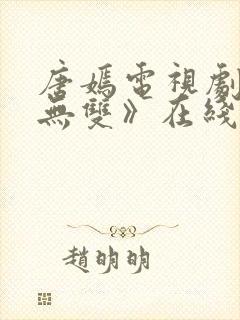 唐嫣電視劇
無雙》在綫
趙明明